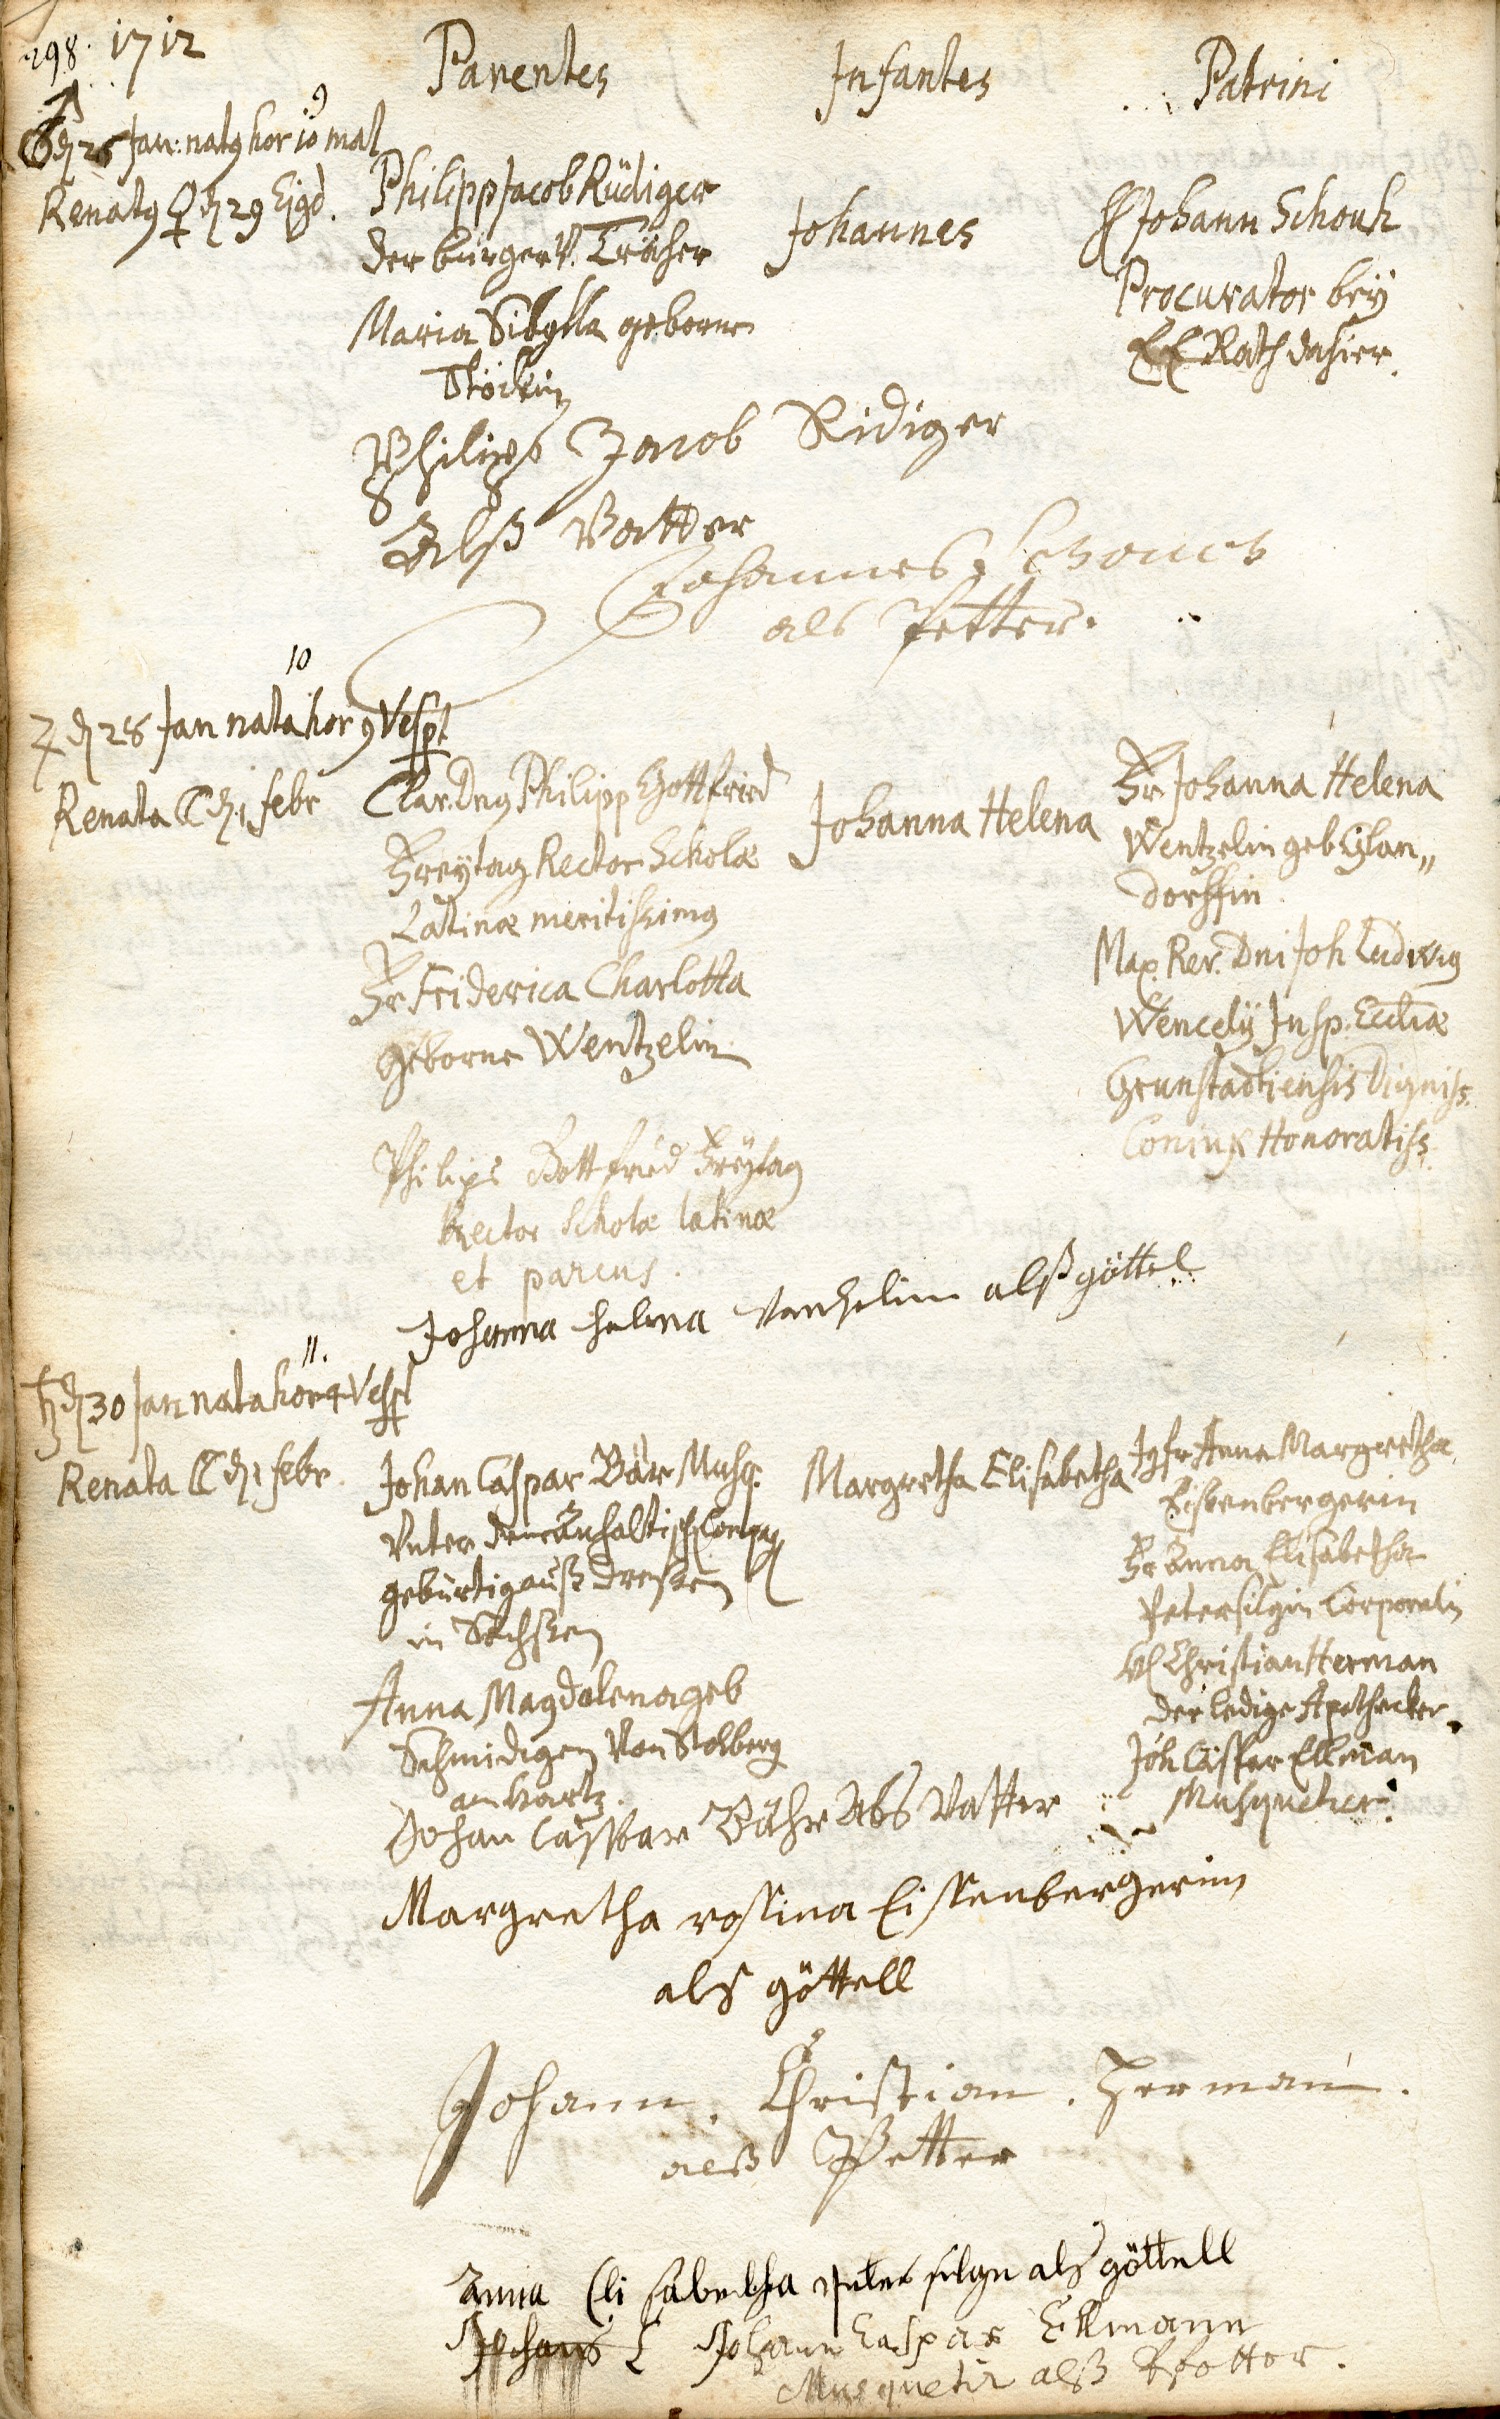 298. 1712
Parentes
Infantes
Patrini
9
d 26 Jan: natq hor 10 mat
Renatq ♀ d 29 Ejqd.
Philipp Jacob Rüdiger
der burger V.
Maria Sibylla geborne
Johannes
H Johann Schouk
Procurator bey
EE Rath dahier.
Philips Jacob Ridiger
Alß Vatter
Johannes
als Petter.
10
♃ d 28 Jan nata hor 9 Vespt
Renata ☾ d 1 febr
Clar. Dnq Philipp Gottfried
Freytag Rector Scholæ
Latinæ meritissimq
Fr Friderica Charlotta
Geborne Wentzelin
Johanna Helena
Fr Johanna Helena
Wentzelin geb Glan„
dorffin
Max. Rev. Dni Joh Ludwig
Wencelij Insp. Eccliæ
Grunstadtiensis Digniss.
Coniux Honoratiss.
Philips Gottfried Freytag
Rector Scholæ latinæ
et parens.
Johanna helena alß göttel
11.
♄ d 30 Jan nata hor 4 Vespt
Renata ☾ d 1 febr
Johan Caspar Bär Musq.
Vnter dem Anhaltisch Comp
gebürtig auß Dreßen
in Sachßen
Anna Magdalena geb
Schmidigen Von Stolberg
am Hartz.
Margretha Elisabetha
Jgfr Anna Margretha
Eissenbergerin
Fr Anna Elisabetha
Petersilgin Corporalin
Christian Herman
der ledige Apothecker.
Joh Casper Ellman
Musquetier.
Johan Casspar Bähr Abs Vatter
Margretha rossina Eissenbergerin
als göttell
Johann. Christian. Herman.
alß Petter
Anna Eli sabetha Peter silgn als göttell
Johans C Johann Caspar Ellmann
Musquetir alß Pfetter.